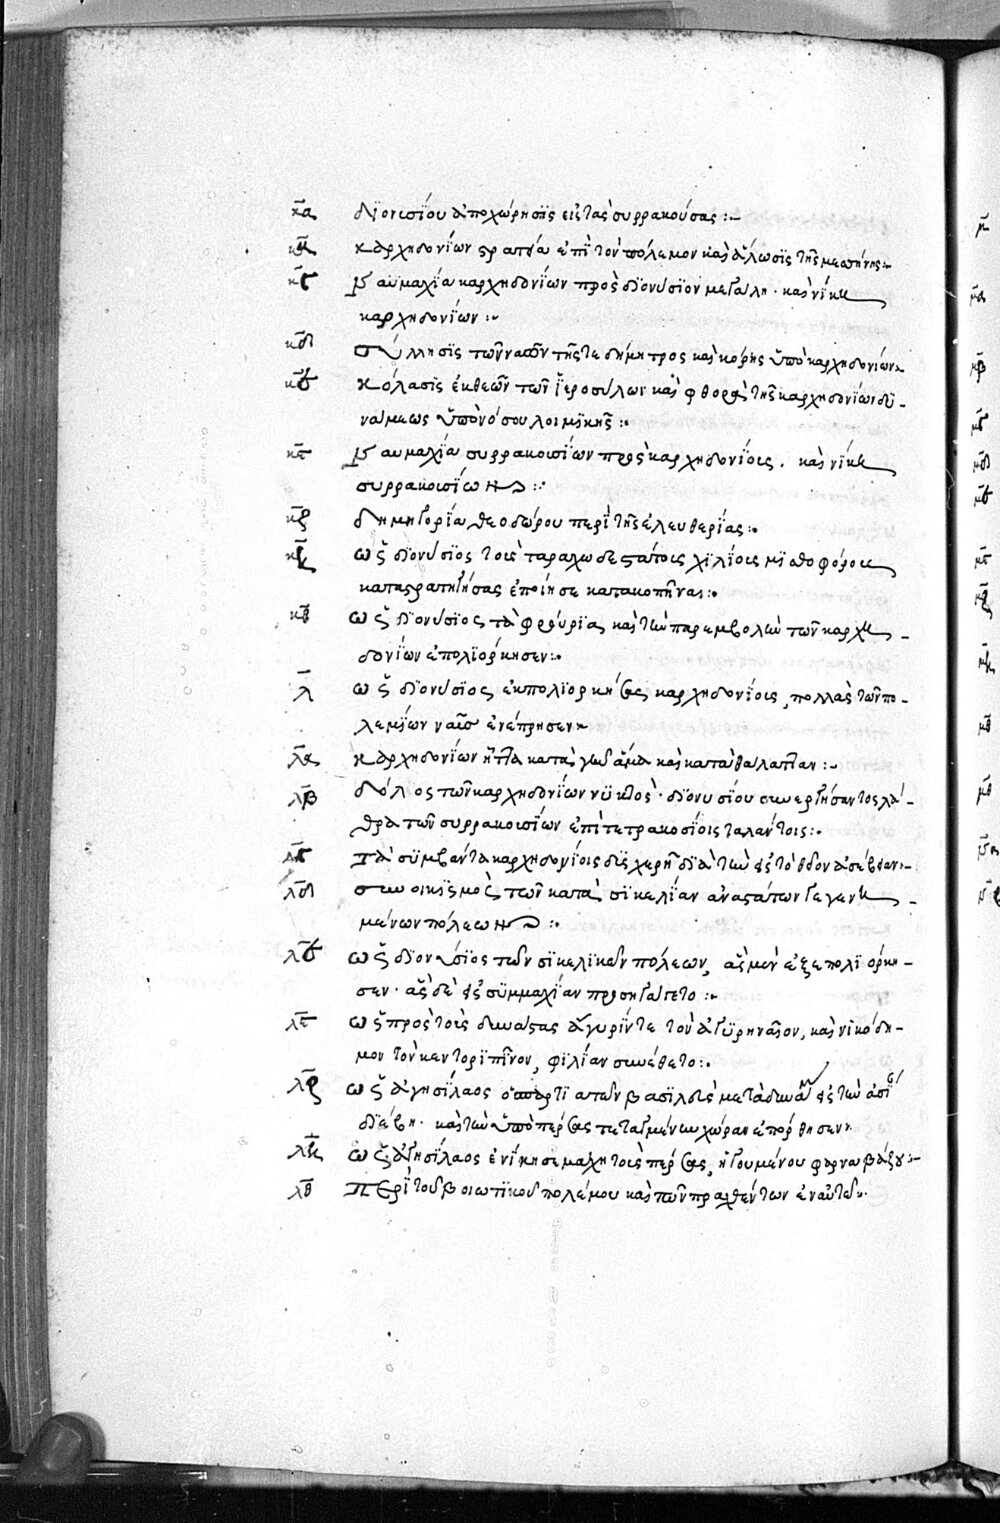 κα διονισίου ἀποχώρησϊς εἰς τὰς συρρακούσας :~
κβ καρχηδονίων στρατεία ἐπὶ τὸν πόλεμον καὶ ἅλωσϊς τῆς μεσήνης:~
κγ ναυμαχία καρχηδονίων πρὸς διονύσϊον μεγάλη · καὶ νίκη
καρχηδονίων :~
κδ σύλλησϊς τῶν ναῶν τῆς τε δήμητρος καὶ κόρης ὑπὸ καρχηδονίων:~
κε κόλασϊς ἐκ θεῶν τῶν ἱεροσύλων καὶ φθορὰ τῆς καρχηδονίων δυ-
νάμεως ὑπὸ νόσου λοιμϊκῆς :~
κϛ ναυμαχία συρρακοισίων πρὸς καρχηδονίοις . καὶ νίκη
συρρακοισίων :~
κζ δημηγορία θεοδώρου περὶ τῆς ἐλευθερίας :~
κη ὡς διονύσϊος τοὺς ταραχωδεστάτοις χϊλίοις μϊσθοφόροις
καταστρατηγήσας ἐποίησε κατακοπῆναι :~
κθ ὡς διονύσϊος τὰ φρούρϊα καὶ τὴν παρεμβολὴν τῶν καρχη-
δονίων ἐπολϊόρκησεν :~
λ ὡς διονύσϊος ἐκπολϊορκήσας καρχηδονίοις, πολλὰς τῶν πο-
λεμίων ναῦς ἐνέπρησεν :~
λα καρχηδονίων ἧττα κατὰ γῆν ἅμα καὶ κατὰ θάλατταν :~
λβ δόλος τῶν καρχηδονίων νϋκτὸς · διονυσίου συνεργήσαντος λά-
θρα τῶν συρρακοισίων ἐπὶ τετρακοσίοις ταλάντοις :~
λγ τὰ σϋμβάντα καρχηδονίοις δυσχερῆ δϊὰ τὴν εἰς τὸ θεῖον ἀσέβειαν :~
λδ συνοικϊσμὸς τῶν κατὰ σϊκελίαν ἀναστάτων γεγενη-
μένων πόλεων :~
λε ὡς διονύσϊος τῶν σϊκελϊκῶν πόλεων, ἃς μὲν ἐξεπολϊόρκη-
σεν · ἃς δὲ εἰς σϋμμαχίαν προσηγάγετο :~
λϛ ὡς πρὸς τοὺς δυνάστας ἄγυρίν τε τὸν ἀγϋρηναῖον, καὶ νϊκόδη-
μον τὸν κεντορϊπῖνον, φϊλίαν συνέθετο :~
λζ ὡς ἀγησίλαος ὁ σπαρτιατῶν βασϊλεὺς μετὰ δυνάμ εἰς τὴν ἀσί
διέβη · καὶ τὴν ὑπὸ πέρσας τεταγμένην χώραν ἐπόρθησεν :~
λη ὡς ἀγησίλαος ἐνίκησε μάχη τοὺς πέρσας, ἡγουμένου φαρναβάζου :~
λθ περὶ τοῦ βοιωτϊκοῦ πολέμου καὶ τῶν πραχθέντων ἐν αὐτῶ :~